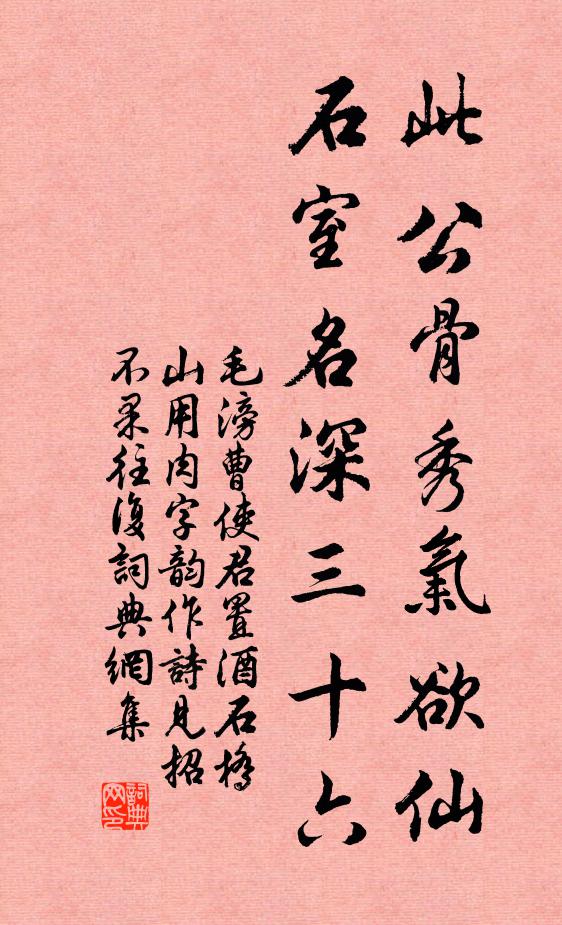 此公骨秀氣欲仙
石室名深三十六
毛滂曹使君置酒石橋
山用肉字韵作詩見招
不果往復詞典網集
詞典网印